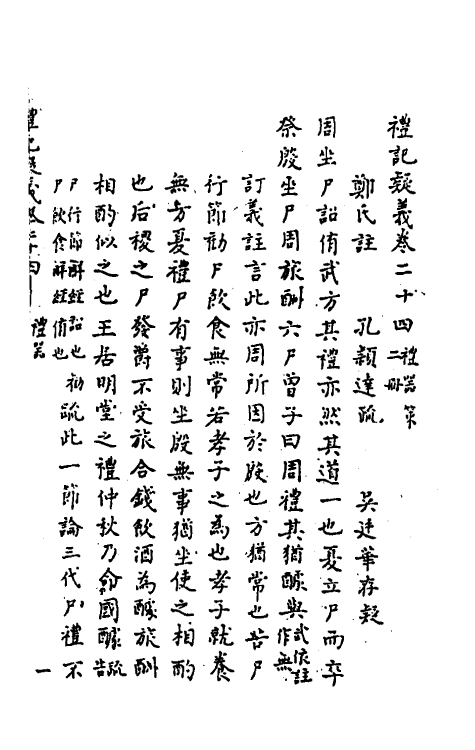 禮記疑義卷二十四 禮器第二冊
鄭氏註 孔穎達疏 吳廷華存疑
周坐尸詔侑武方其禮亦然其道一也夏立尸而卒
祭殷坐尸周旅酬六尸曾子曰周禮其猶醵與武依註作無
訂義註言此亦周所因於殷也方猶常也告尸
行節勸尸飲食無常若孝子之為也孝子就養
無方夏禮尸有事則坐殷無事猶坐使之相酌
也后稷之尸發爵不受旅合錢飲酒為醵旅酬
相酌似之也王居明堂之禮仲秋乃命國醵疏告
尸行節解經詔也勸尸飲食解經侑也 疏此一節論三代尸禮不
禮記疑義卷二十四 禮器 一